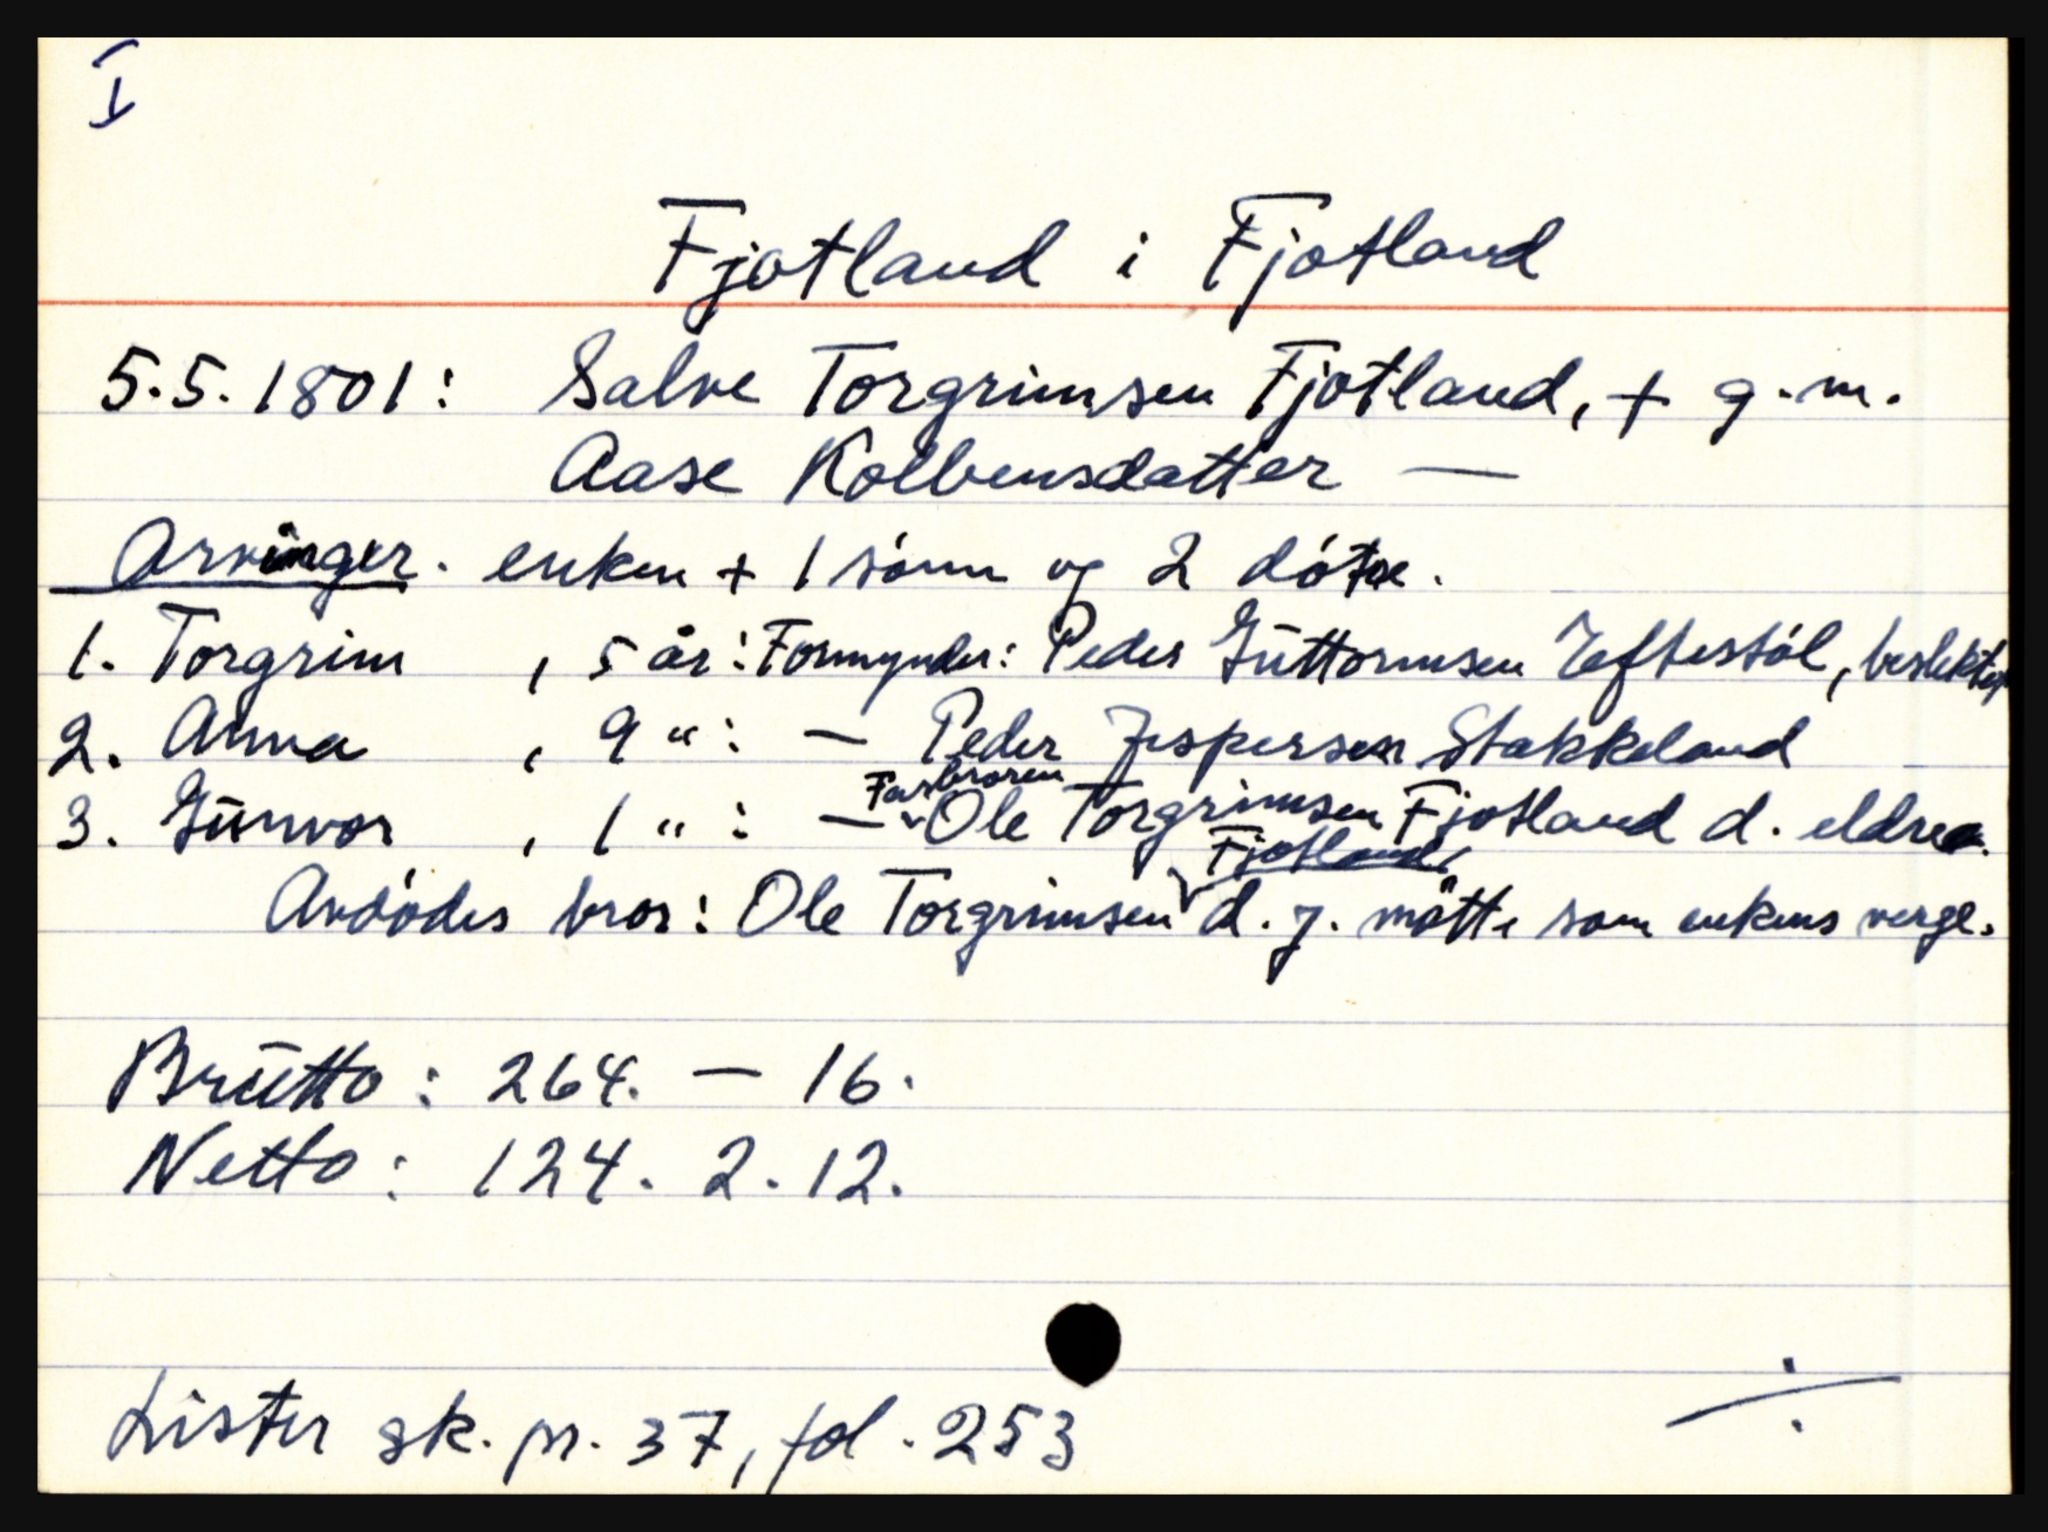 I
Fjotland i Fjotland
5.5.1801: Salve Torgrimsen Fjotland, + g.m.
Aase Kolbensdatter —
Arvinger. enken + 1 sønn og 2 døtre.
1. Torgrim , 5 år: Formynder: Peder Guttormsen Eftestøl, beslektet
2. Anna , 9 " : — Peder Jespersen Stakkeland
3. Gunvor , 1 " : — Farbroren Ole Torgrimsen Fjotland d. eldre.
Avdødes bror: Ole Torgrimsen Fjotland d. y. møtte som enkens verge.
Brutto: 264. — 16.
Netto: 124. 2. 12.
Lister sk. pr. 37, fol. 253